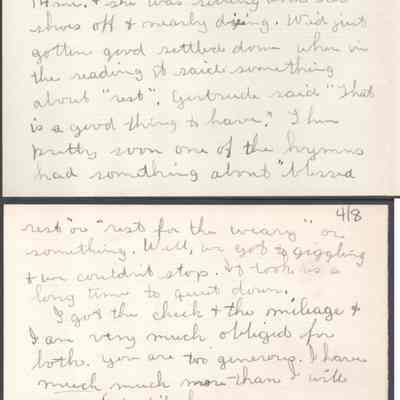 & she was sitting
shoes off & nearly dying. We'd just
gotten good settled down when in
the reading it said something
about "rest". Gertrude said "That
is a good thing to have." Then
pretty soon one of the hymns
had something about "blessed
4/8
rest" or "rest for the weary" or
something. Well, we got to giggling
& we couldn't stop. It took us a
long time to quiet down.
I got the check & the mileage &
I am very much obliged for
both. You are too generous. I have
much much more than I will